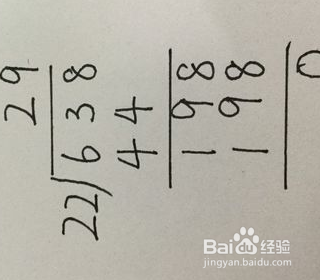 29
22)638
44
198
198
0
Baidu经验
jingyan.baidu.com